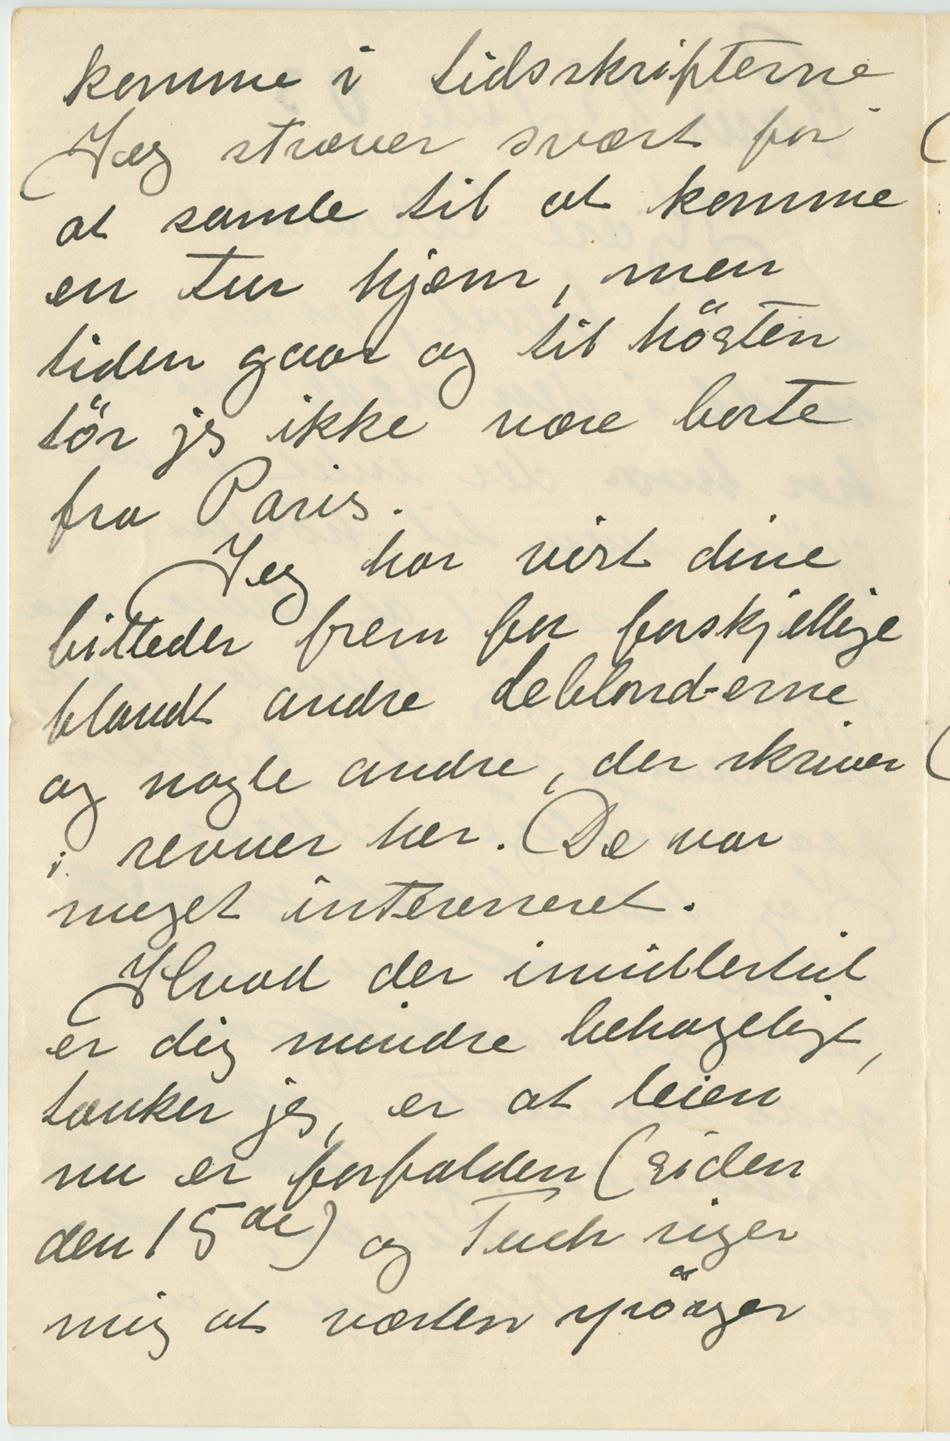 komme i tidsskrifterne
Jeg stræver svært for
at samle til at komme
en tur hjem, men
tiden gaar og til hösten
tör jeg ikke være borte
fra Paris.
Jeg har vist dine
billeder frem for forskjellige
blandt andre Leblond-erne
og nogle andre, der skriver
i revuer her. De var
meget interesseret.
Hvad der imidlertid
er dig mindre behageligt,
tænker jeg, er at leien
nu er forfalden (siden
den 15de) og Tuch siger
mig at værten spörger